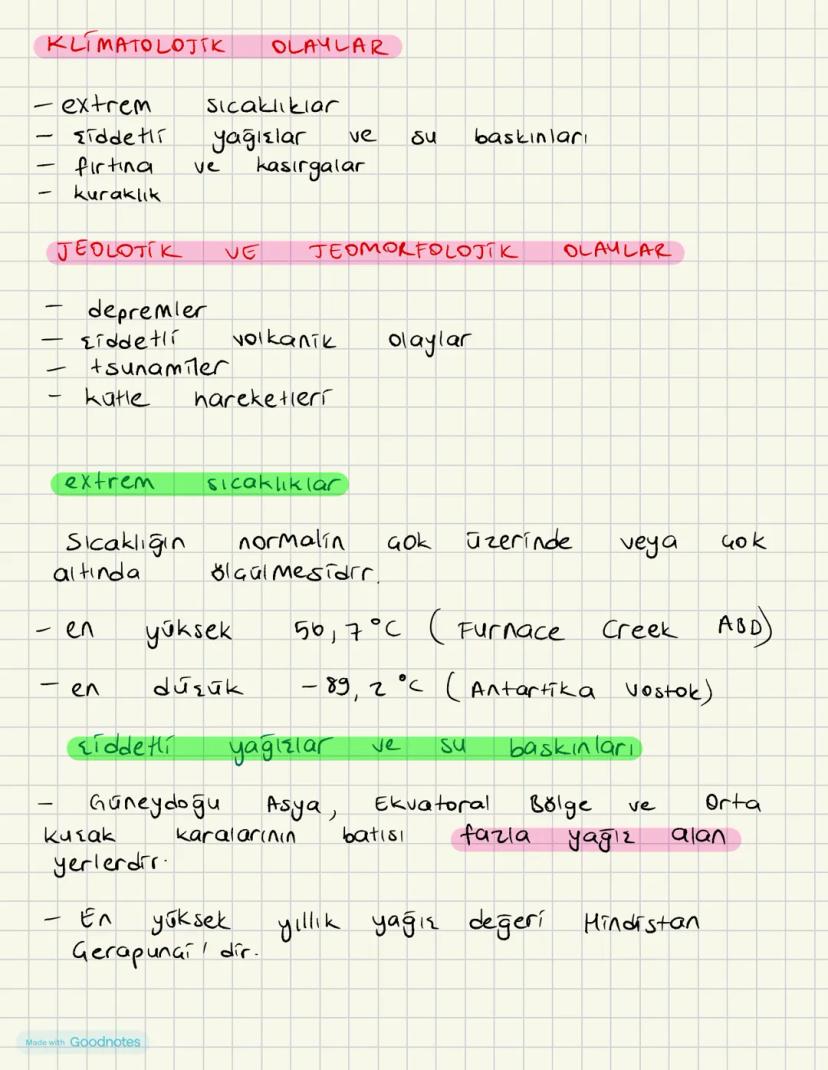 KLİMATOLOJİK OLAYLAR
- extrem sıcaklıklar
- şiddetli yağışlar ve su baskınları
- fırtına ve kasırgalar
- kuraklık
JEOLOJİK VE JEOMORFOLOJİK OLAYLAR
- depremler
- şiddetli volkanik olaylar
- tsunamiler
- kütle hareketleri
extrem sıcaklıklar
Sıcaklığın normalin çok üzerinde veya çok
altında ölçülmesidir.
- en yüksek 56,7°C (Furnace Creek ABD)
- en düşük -89,2 °C (Antartika Vostok)
şiddetli yağışlar ve su baskınları
- Güneydoğu Asya, Ekvatoral Bölge ve Orta
kuşak karalarının batısı fazla yağış alan
yerlerdir.
- En yüksek yıllık yağış değeri Hindistan
Çerapunçi'dir.
Made with Goodnotes